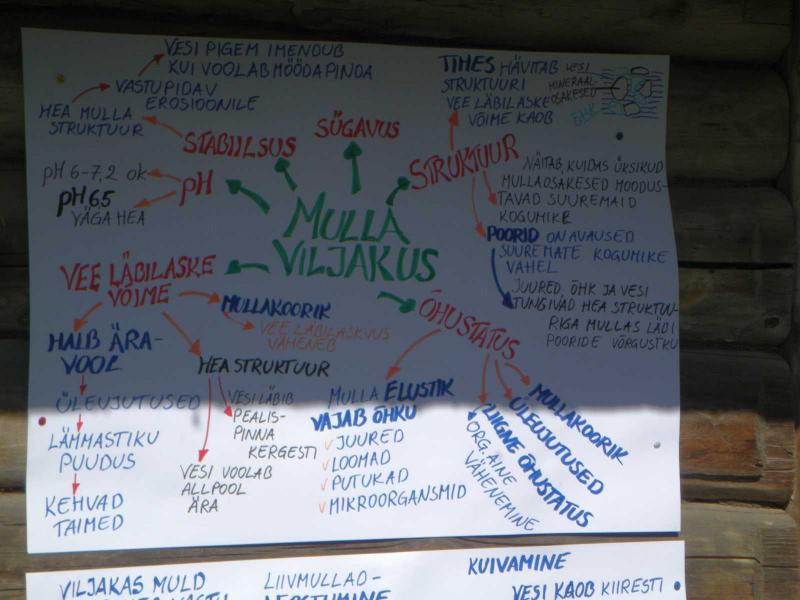 VESI PIGEM IMENDUB
KUI VOOLAB MÖÖDA PINDA
VASTUPIDAV
EROSIOONILE
HEA MULLA
STRUKTUUR
STABIILSUS
SÜGAVUS
TIHES HÄVITAB
STRUKTUURI
VEE LÄBILASKE
VÕIME KAOB
VESI
MINERAAL-
OSAKESED
ÕHK
STRUKTUUR
pH 6-7,2 ok
pH
pH 6,5
VÄGA HEA
NÄITAB, KUIDAS ÜKSIKUD
MULLAOSAKESED MOODUS-
TAVAD SUUREMAID
KOGUMIKE
POORID ON AVAUSED
SUUREMATE KOGUMIKE
VAHEL
JUURED, ÕHK JA VESI
TUNGIVAD HEA STRUKTUU-
RIGA MULLAS LÄBI
POORIDE VÕRGUSTKU
MULLA
VILJAKUS
VEE LÄBILASKE
VÕIME
MULLAKOORIK
VEE LÄBILASKVUS
VÄHENEB
HALB ÄRA-
VOOL
ÜLEUJUTUSED
LÄMMASTIKU
PUUDUS
KEHVAD
TAIMED
HEA STRUKTUUR
VESI LÄBIB
PEALIS-
PINNA
KERGESTI
VESI VOOLAB
ALLPOOL
ÄRA
ÕHUSTATUS
MULLA ELUSTIK
VAJAB ÕHKU
JUURED
LOOMAD
PUTUKAD
MIKROORGANSMID
ORG. AINE
VÄHENEMINE
LIIGNE ÕHUSTATUS
ÜLEUJUTUSED
MULLAKOORIK
VILJAKAS MULD
LIIVMULLAD-
KUIVAMINE
VESI KAOB KIIRESTI